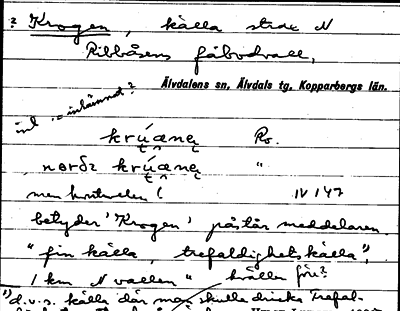 ? Krogen, källa strax N
Ribbåsens fäbodvall,
Älvdalens sn, Älvdals tg, Kopparbergs län.
inlämnat?
krúænę Ro.
nọrðz krúænę "
men kontrollen! IV 147
betyder 'Krogen' påstår meddelaren.
"fin källa, trefaldighetskälla",
1 km N vallen" källa för?
1) d.v.s. källa där man skulle dricka Trefal-